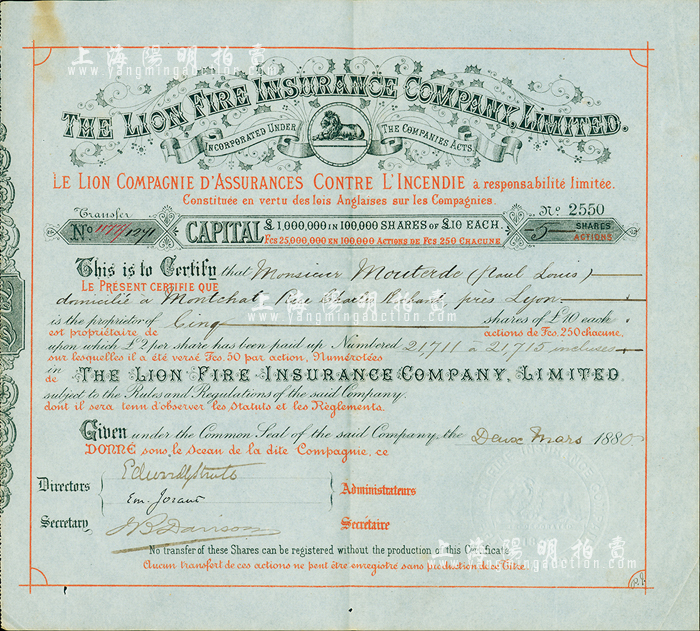 上海陽明拍賣
www.yangmingauction.com
THE LION FIRE INSURANCE COMPANY, LIMITED.
INCORPORATED UNDER THE COMPANIES ACTS
LE LION COMPAGNIE D'ASSURANCES CONTRE L'INCENDIE a responsabilité limitée.
Constituée en vertu des lois Anglaises sur les Compagnies.
Transfer
No 2550
No 1241
CAPITAL £1,000,000 IN 100,000 SHARES OF £10 EACH.
Fcs 25,000,000 EN 100,000 ACTIONS DE Fcs 250 CHACUNE
5 SHARES
ACTIONS
This is to Certify that Monsieur Mouterde (Paul Louis)
LE PRÉSENT CERTIFIE QUE
domicilié à Montchat, Rue près Lyon
is the proprietor of Cinq shares of £10 each
est propriétaire de actions de Fcs. 250 chacune,
upon which £2 per share has been paid up Numbered 21,711 à 21,715 incluses
sur lesquelles il a été versé Fcs. 50 par action, Numérotées
in
de THE LION FIRE INSURANCE COMPANY, LIMITED
subject to the Rules and Regulations of the said Company.
dont il sera tenu d'observer les Statuts et les Règlements.
Given under the Common Seal of the said Company, the Deux Mars 1880
DONNÉ sous le Sceau de la dite Compagnie, ce
Directors
Em. Joraut
Administrateurs
Secretary
Secrétaire
No transfer of these Shares can be registered without the production of this Certificate
Aucun transfert de ces actions ne peut être enregistré sans production de ce Titre.
上海陽明拍賣
www.yangmingauction.com